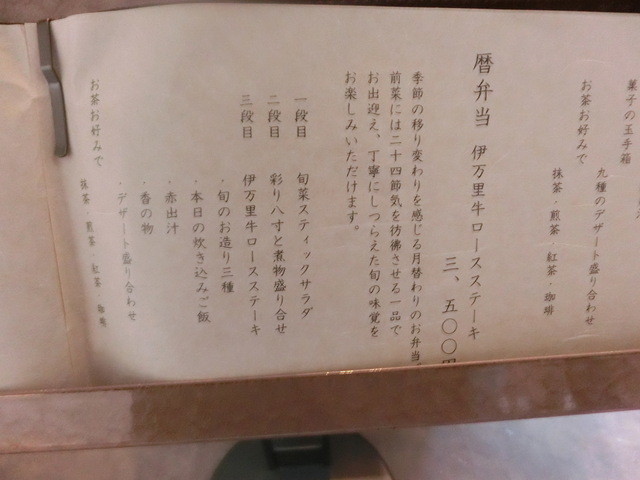 菓子の玉手箱
九種のデザート盛り合わせ
お茶お好みで
抹茶・煎茶・紅茶・珈琲
暦弁当 伊万里牛ロースステーキ
三、五〇〇円
季節の移り変わりを感じる月替わりのお弁当
前菜には二十四節気を彷彿させる一品で
お出迎え、丁寧にしつらえた旬の味覚を
お楽しみいただけます。
一段目 旬菜スティックサラダ
二段目 彩り八寸と煮物盛り合せ
三段目 伊万里牛ロースステーキ
・旬のお造り三種
・本日の炊き込みご飯
・赤出汁
・香の物
・デザート盛り合わせ
お茶お好みで
抹茶・煎茶・紅茶・珈琲